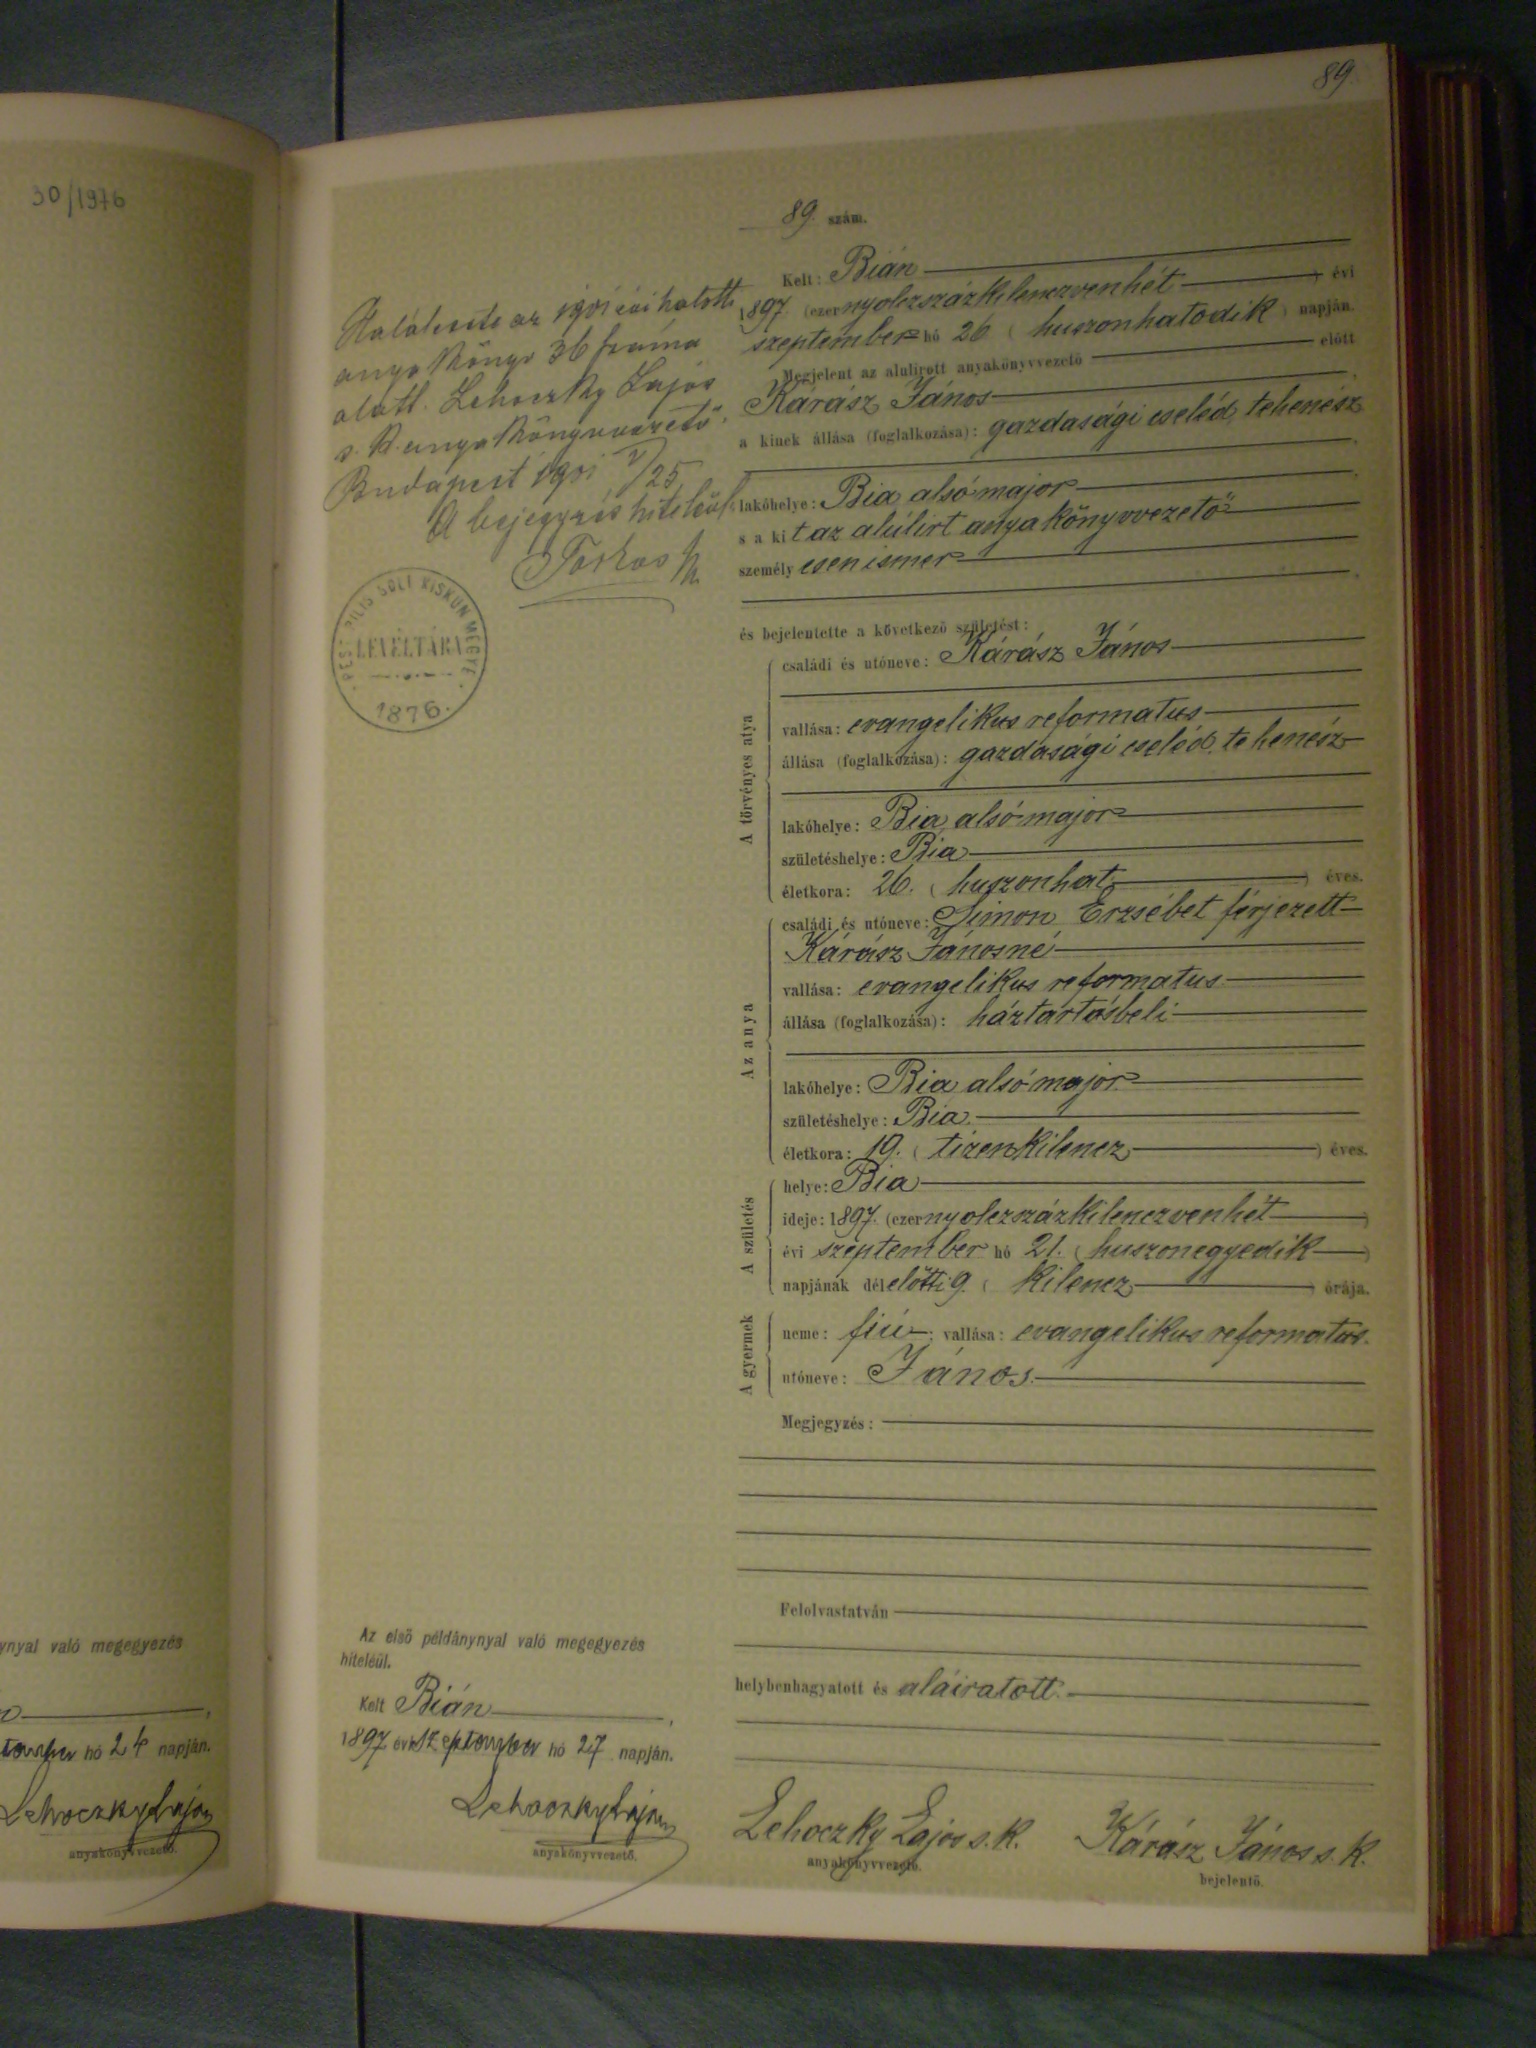 30/1976
nynyal való megegyezés
hó 24 napján.
Lehoczky Lajos
anyakönyvvezető.
89.
89. szám.
Kelt: Bián
1897. (ezernyolczszázkilenczvenhét ) évi
szeptember hó 26 ( huszonhatodik ) napján.
Megjelent az alulirott anyakönyvvezető előtt
Kárász János
a kinek állása (foglalkozása): gazdasági cseléd, tehenész
lakóhelye: Bia alsó major
s a kit az alúlirt anyakönyvvezető
személyesen ismer
és bejelentette a következő születést:
A törvényes atya
családi és utóneve: Kárász János
vallása: evangelikus reformatus
állása (foglalkozása): gazdasági cseléd, tehenész
lakóhelye: Bia, alsó major
születéshelye: Bia
életkora: 26. ( huszonhat ) éves.
Az anya
családi és utóneve: Simon Erzsébet férjezett
Kárász Jánosné
vallása: evangelikus reformatus
állása (foglalkozása): háztartásbeli
lakóhelye: Bia alsó major
születéshelye: Bia.
életkora: 19. ( tizenkilencz ) éves.
A születés
helye: Bia
ideje: 1897. (ezernyolczszázkilenczvenhét )
évi szeptember hó 21. ( huszonegyedik )
napjának délelőtti 9. ( kilencz ) órája.
A gyermek
neme: fiú ; vallása: evangelikus reformatus.
utóneve: János.
Megjegyzés:
Felolvastatván
helybenhagyatott és aláiratott.
Lehoczky Lajos s. k. Kárász János s. k.
anyakönyvvezető. bejelentő.
Halálesete az 1901 évi halotti
anyakönyv 36 száma
alatt. Lehoczky Lajos
s. k. anyakönyvvezető.
Budapest 1901 V/25
A bejegyzés hiteléül:
PEST PILIS SOLT KISKUN MEGYE
LEVÉLTÁRA
1876.
Az első példánynyal való megegyezés
hiteléül.
Kelt Bián
1897 évi szeptember hó 27 napján.
Lehoczky Lajos
anyakönyvvezető.